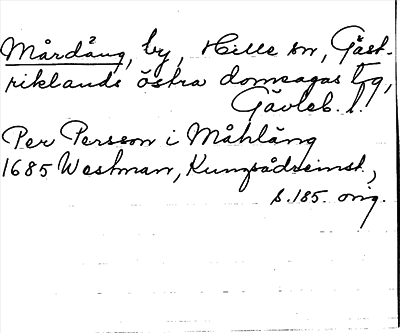 Mårdång, by, Hille sn, Gäst-
riklands östra domsagas tg,
Gävleb. l.
Per Persson i Måhläng
1685 Westman, Kungsådreinst.,
s. 185. orig.